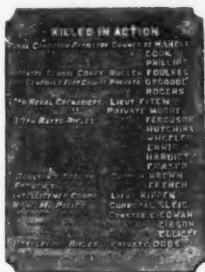 KILLED IN ACTION
ROYAL CANADIAN ARTILLERY GUNNER DE MANOLLY
COOK
PHILLIPS
INFANTRY SCHOOL CORPS BUGLER FOULKES
PRIVATE OSGOODE
ROGERS
10TH ROYAL GRENADIERS LIEUT FITCH
PRIVATE MOORE
90TH BATTN RIFLES FERGUSON
HUTCHINS
WHEELER
ENNIS
HARDISTY
FRASER
BOULTON'S SCOUTS CAPTAIN BROWN
FRENCH'S FRENCH
INTELLIGENCE CORPS LIEUT KIPPEN
N.W.M. POLICE CORPORAL SLEIGH
CONSTABLE COWAN
GIBSON
ELLIOTT
RIFLES PRIVATE DOBS